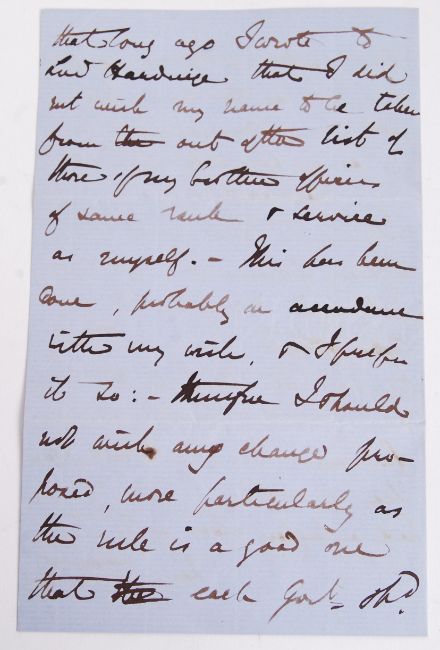 that long ago I wrote to
Lord Hardinge that I did
not wish my name to be taken
from the out of the list of
those of my brother officers
of same rank & service
as myself. - This has been
done, probably in accordance
with my wish, & I prefer
it so: - Therefore I should
not wish any change pro-
posed, more particularly as
the rule is a good one
that the each Govt. shd